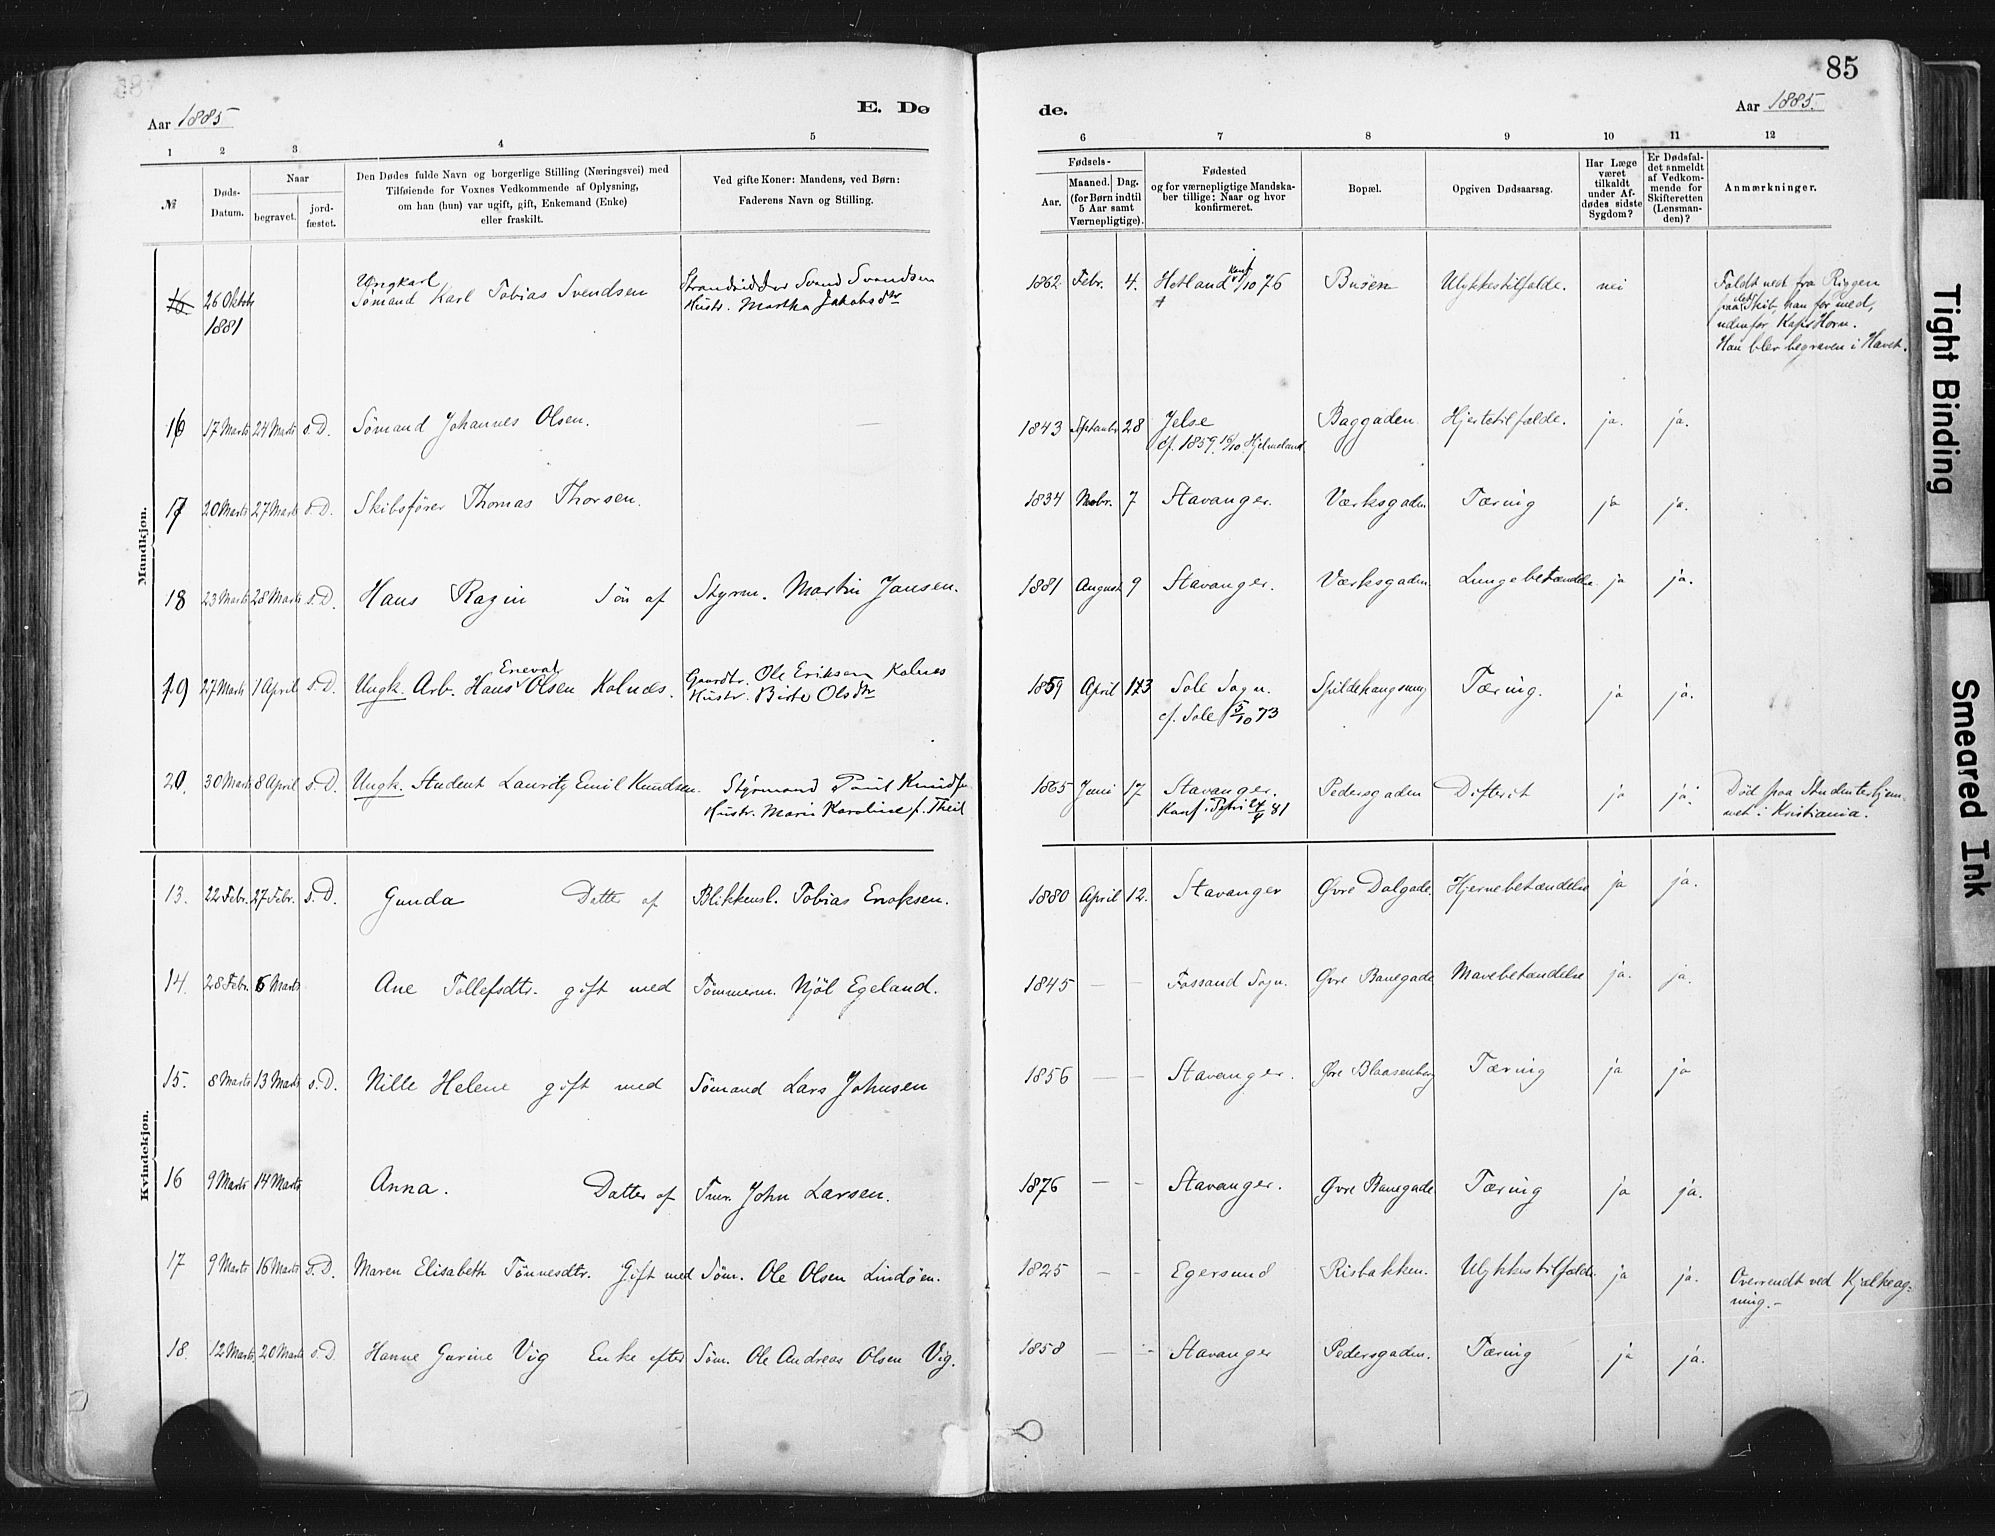 85
Aar 1885
E. Dø
de.
Aar 1885.
1 2 3 4 5 6 7 8 9 10 11 12
№
Døds-
Datum.
Naar
begravet.
jord-
fæstet.
Den Dødes fulde Navn og borgerlige Stilling (Næringsvei) med
Tilføiende for Voxnes Vedkommende af Oplysning,
om han (hun) var ugift, gift, Enkemand (Enke)
eller fraskilt.
Ved gifte Koner: Mandens, ved Børn:
Faderens Navn og Stilling.
Fødsels-
Aar.
Maaned. Dag.
(for Børn indtil
5 Aar samt
Værnepligtige).
Fødested
og for værnepligtige Mandska-
ber tillige: Naar og hvor
konfirmeret.
Bopæl.
Opgiven Dødsaarsag.
Har Læge
været
tilkaldt
under Af-
dødes sidste
Sygdom?
Er Dødsfal-
det anmeldt
af Vedkom-
mende for
Skifteretten
(Lensman-
den)?
Anmærkninger.
Mandkjøn.
16 26 Oktbr 1881
Ungkarl
Sømand Karl Tobias Svendsen
Strandsidder Svend Svendsen
Hustr. Martha Jakobsdtr
1862 Febr. 4. Hetland Konf 1/10 76 Busen Ulykkestilfælde. nei
Faldt ned fra Riggen
paa det Skib, han for med,
udenfor Kap Horn.
Han blev begraven i Havet.
16 17 Marts 24 Marts s.D. Sømand Johannes Olsen.
1843 Septembr 28 Jelse
cf. 1859 16/10 Hjelmeland
Baggaden. Hjertetilfælde. ja. ja.
17 20 Marts 27 Marts s.D. Skibsfører Thomas Thorsen.
1834 Novbr. 7 Stavanger. Værksgaden Tæring ja ja.
18 23 Marts 28 Marts s.D. Hans Ragin Søn af Styrm. Martin Jansen.
1881 August 9 Stavanger. Værksgaden Lungebetændelse ja ja.
19 27 Marts 1 April s.D. Ungk. Arb. Hans Eneval Olsen Kolnes.
Gaardbr. Ole Eriksen Kolnes
Hustr. Birte Olsdtr
1859 April 13 Sole Sogn.
cf. Sole 5/10 73
Spildehaugsung Tæring. ja ja.
20. 30 Marts 8 April s.D. Ungk. Student Lauritz Emil Knudsen.
Styrmand Poul Knudsen
Hustr. Marie Karoline f. Theil
1865 Juni 17 Stavanger.
Konf. i Petri /4 81
Pedersgaden Difterit ja ja.
Død paa Studenterhjem-
met i Kristiania.
Kvindekjøn.
13. 22 Febr. 27 Febr. s.D. Gunda Datter af Blikkensl. Tobias Enoksen.
1880 April 12. Stavanger Øvre Dalgade. Hjernebetændelse ja ja.
14. 28 Febr. 6 Marts Ane Tollefsdtr. gift med Tømmerm. Njøl Egeland.
1845 — — Fossand Sogn. Øvre Banegade Mavebetændelse ja. ja.
15. 8 Marts 13 Marts s.D. Nille Helene gift med Sømand Lars Johnsen
1856 — — Stavanger. Øvre Blaasenborg Tæring ja ja
16 9 Marts 14 Marts Anna. Datter af Tmr. John Larsen.
1876 — — Stavanger. Øvre Banegade Tæring ja ja.
17 9 Marts 16 Marts s.D. Maren Elisabeth Tønnesdtr. Gift med Søm. Ole Olsen Lindøen.
1825 — — Egersund Risbakken. Ulykkestilfælde ja ja.
Overrendt ved Kjælkeag-
ning.-
18. 12 Marts 20 Marts s.D. Hanne Gurine Vig Enke efter Søm. Ole Andreas Olsen Vig.
1858 — — Stavanger Pedersgaden. Tæring ja ja.
Tight Binding
Smeared Ink